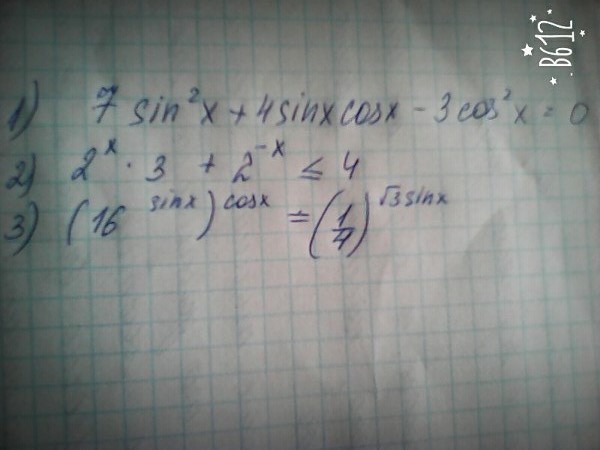 B612
1) 7 sin²x + 4 sinx cosx - 3 cos²x = 0
2) 2^x · 3 + 2^-x ≤ 4
3) (16^sinx)^cosx = (1/4)^√3 sinx